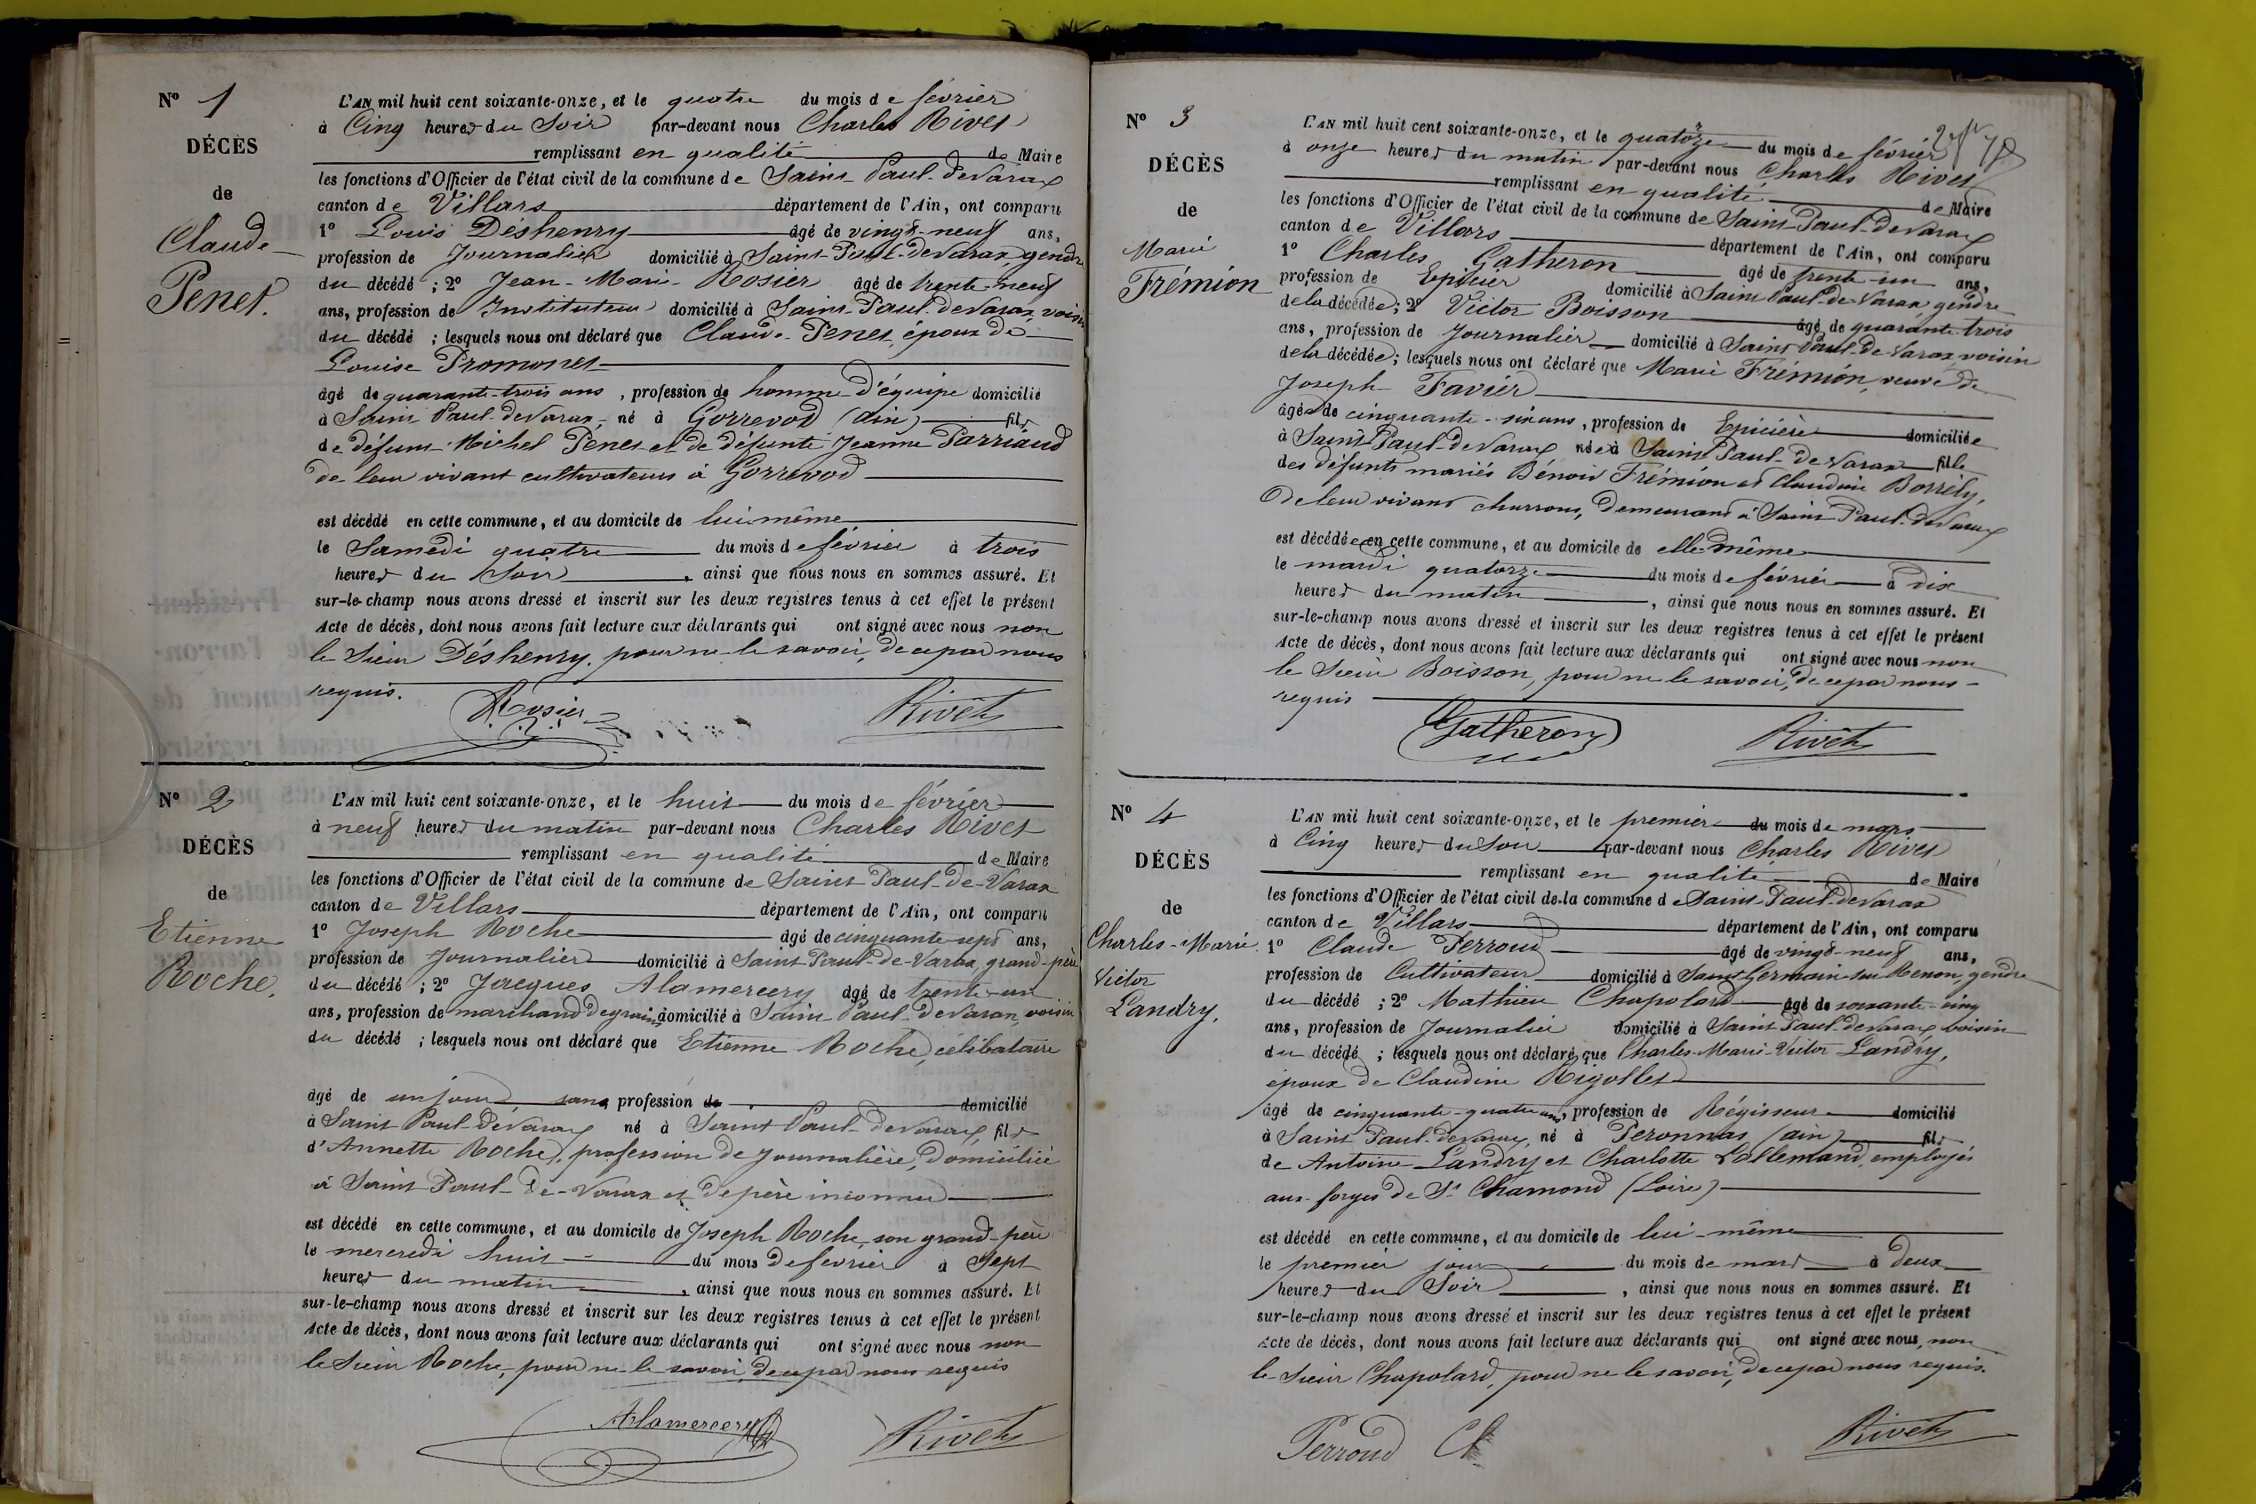 N° 1
DÉCÈS
de
Claude
Penet.
L'AN mil huit cent soixante-onze, et le quatre du mois de février
à Cinq heures du Soir par-devant nous Charles Rivet
remplissant en qualité de Maire
les fonctions d'Officier de l'état civil de la commune de Saint-Paul-de Varax
canton de Villars département de l'Ain, ont comparu
1° Louis Déshenry âgé de vingt-neuf ans,
profession de Journalier domicilié à Saint-Paul-de Varax, gendre
du décédé ; 2° Jean-Marie Rosier âgé de trente-neuf
ans, profession de Instituteur domicilié à Saint-Paul-de Varax, voisin
du décédé ; lesquels nous ont déclaré que Claude Penet, époux de
Louise Promonet
âgé de quarante-trois ans, profession de homme d'équipe domicilié
à Saint Paul-de Varax, né à Gorrevod (Ain) fils
de défunt Michel Penet et de défunte Jeanne Parriaud
de leur vivant cultivateurs à Gorrevod
est décédé en cette commune, et au domicile de lui-même
le Samedi quatre du mois de février à trois
heures du Soir, ainsi que nous nous en sommes assuré. Et
sur-le-champ nous avons dressé et inscrit sur les deux registres tenus à cet effet le présent
Acte de décès, dont nous avons fait lecture aux déclarants qui ont signé avec nous non
le Sieur Déshenry, pour ne le savoir, de ce par nous
requis.
Rosier Rivet
N° 2
DÉCÈS
de
Etienne
Roche.
L'AN mil huit cent soixante-onze, et le huit du mois de février
à neuf heures du matin par-devant nous Charles Rivet
remplissant en qualité de Maire
les fonctions d'Officier de l'état civil de la commune de Saint Paul-de-Varax
canton de Villars département de l'Ain, ont comparu
1° Joseph Roche âgé de cinquante-sept ans,
profession de Journalier domicilié à Saint-Paul-de-Varax, grand-père
du décédé ; 2° Jacques Alamercery âgé de trente-un
ans, profession de marchand de grains domicilié à Saint Paul-de Varax, voisin
du décédé ; lesquels nous ont déclaré que Etienne Roche, célibataire
âgé de un jour sans profession de domicilié
à Saint Paul-de Varax né à Saint Paul-de Varax, fils
d'Annette Roche, profession de Journalière, domiciliée
à Saint Paul-de-Varax et de père inconnu
est décédé en cette commune, et au domicile de Joseph Roche, son grand-père
le mercredi huit du mois de février à Sept
heures du matin, ainsi que nous nous en sommes assuré. Et
sur-le-champ nous avons dressé et inscrit sur les deux registres tenus à cet effet le présent
Acte de décès, dont nous avons fait lecture aux déclarants qui ont signé avec nous non
le Sieur Roche, pour ne le savoir, de ce par nous requis
Alamercery Rivet
N° 3
DÉCÈS
de
Marie
Frémion
L'AN mil huit cent soixante-onze, et le quatorze du mois de février
à onze heures du matin par-devant nous Charles Rivet
remplissant en qualité de Maire
les fonctions d'Officier de l'état civil de la commune de Saint-Paul-de Varax
canton de Villars département de l'Ain, ont comparu
1° Charles Gatheron âgé de trente-un ans,
profession de Epicier domicilié à Saint Paul-de-Varax, gendre
de la décédée ; 2° Victor Boisson âgé de quarante-trois
ans, profession de Journalier domicilié à Saint Paul-de-Varax, voisin
de la décédée ; lesquels nous ont déclaré que Marie Frémion, veuve de
Joseph Favier
âgée de cinquante-six ans, profession de Epicière domiciliée
à Saint Paul-de Varax née à Saint Paul-de-Varax fille
des défunts mariés Bénoit Frémion et Claudine Borrély,
de leur vivant charrons, demeurant à Saint-Paul-de Varax
est décédée en cette commune, et au domicile de elle-même
le mardi quatorze du mois de février à dix
heures du matin, ainsi que nous nous en sommes assuré. Et
sur-le-champ nous avons dressé et inscrit sur les deux registres tenus à cet effet le présent
Acte de décès, dont nous avons fait lecture aux déclarants qui ont signé avec nous non
le Sieur Boisson, pour ne le savoir, de ce par nous
requis
Gatheron Rivet
N° 4
DÉCÈS
de
Charles-Marie
Victor
Landry.
L'AN mil huit cent soixante-onze, et le premier du mois de mars
à Cinq heures du Soir par-devant nous Charles Rivet
remplissant en qualité de Maire
les fonctions d'Officier de l'état civil de la commune de Saint-Paul-de Varax
canton de Villars département de l'Ain, ont comparu
1° Claude Perroud âgé de vingt-neuf ans,
profession de Cultivateur domicilié à Saint-Germain-sur-Renon, gendre
du décédé ; 2° Mathieu Chapolard âgé de soixante-cinq
ans, profession de Journalier domicilié à Saint Paul-de Varax voisin
du décédé ; lesquels nous ont déclaré que Charles-Marie-Victor Landry,
époux de Claudine Rigollet
âgé de cinquante-quatre ans, profession de Régisseur domicilié
à Saint-Paul-de Varax, né à Peronnas (Ain) fils
de Antoine Landry et Charlotte Lallemand, employés
aux forges de St Chamond (Loire)
est décédé en cette commune, et au domicile de lui-même
le premier jour du mois de mars à deux
heures du Soir, ainsi que nous nous en sommes assuré. Et
sur-le-champ nous avons dressé et inscrit sur les deux registres tenus à cet effet le présent
Acte de décès, dont nous avons fait lecture aux déclarants qui ont signé avec nous, non
le Sieur Chapolard, pour ne le savoir, de ce par nous requis.
Perroud Cl Rivet